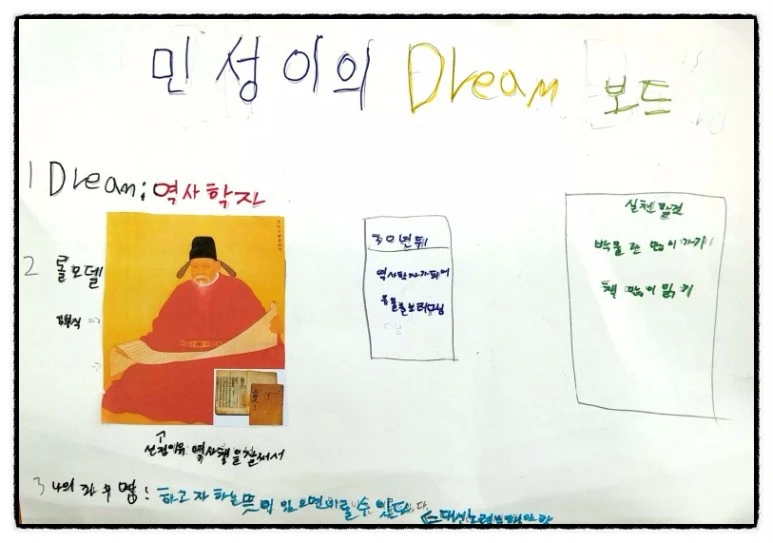 민성이의 Dream 보드
1 Dream: 역사학자
2 롤모델
김부식 =>
선정이유: 역사책을 잘써서
30년뒤
역사학자가되어
유물을
실천
박물관 많이 가기
책 많이 읽기
3 나의 좌우명: 하고자하는 뜻이 있으면 이룰수 있다